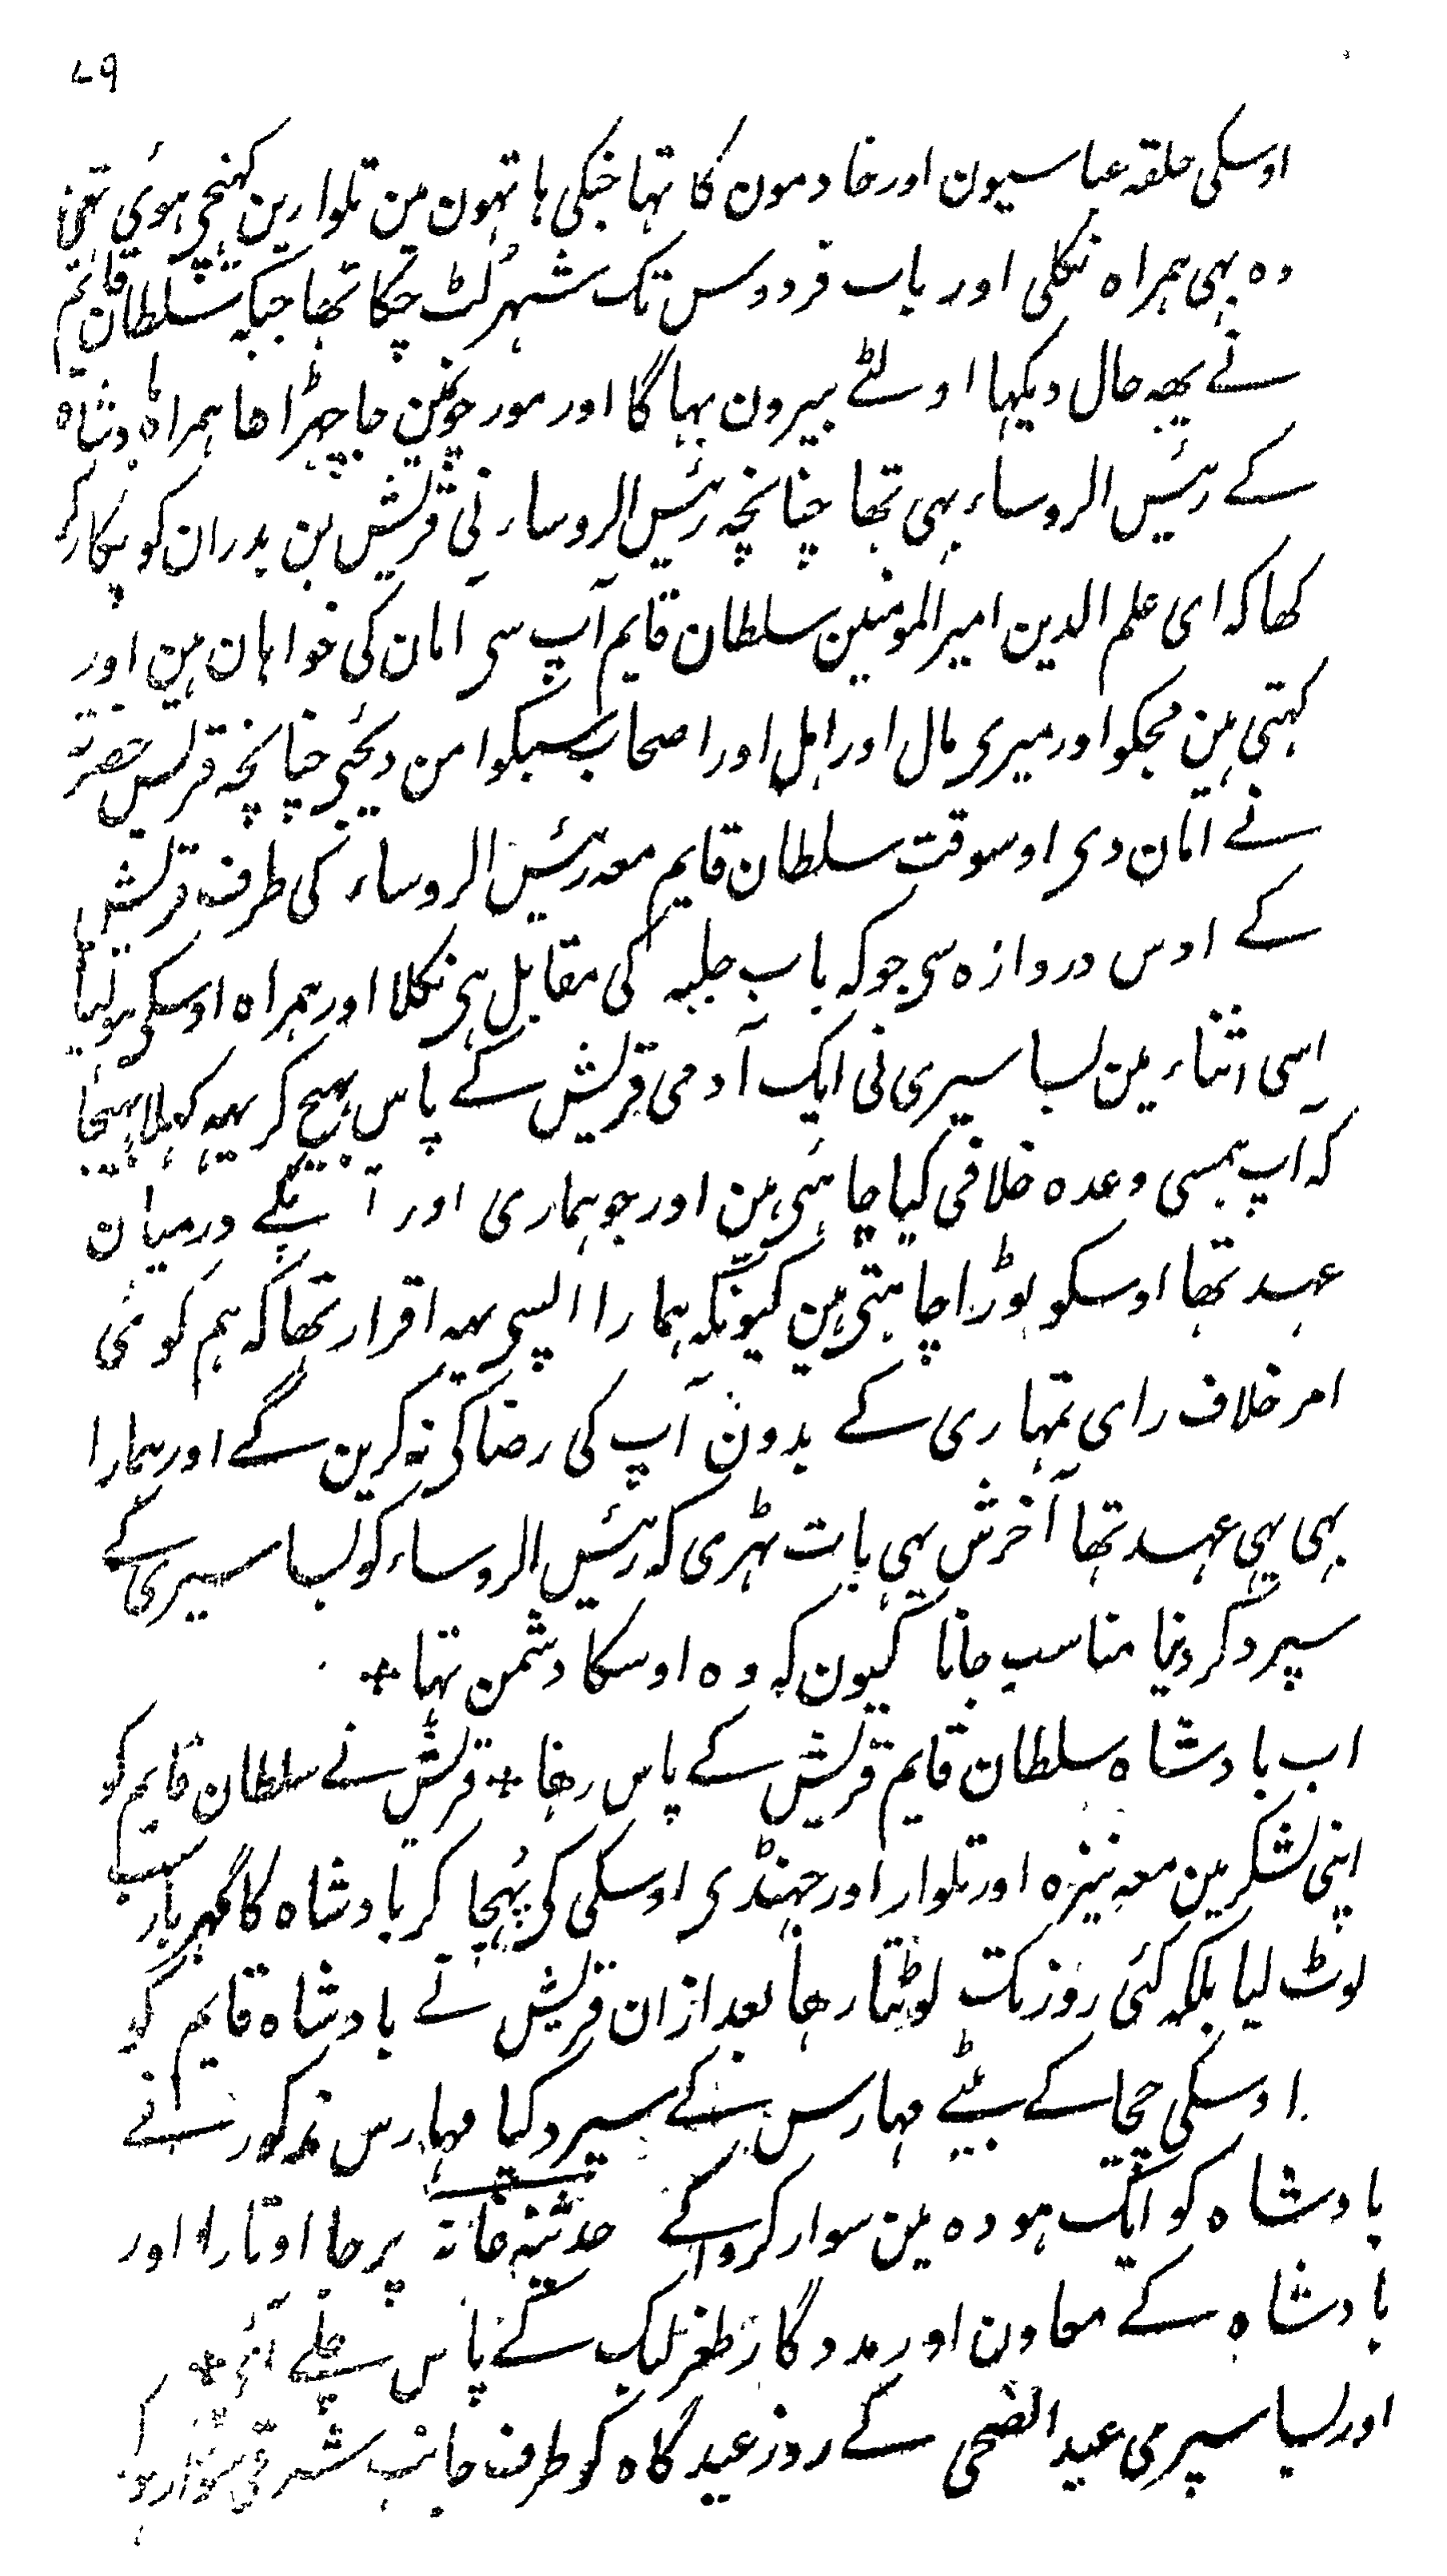 ٧٩
اوسکی حلقہ عباسیون اور خادمون کا تہا جنکی ہاتہون مین تلوارین کہنچی ہوئی تہین
وہ بہی ہمراہ نکلی اور باب فردوس تک شہر لٹ چکا تھا جبکہ سلطان قایم
نے یہہ حال دیکہا اولٹے پیرون بہاگا اور مورچونمین جا چہڑاھا ہمراہ بادشاہ
کے رئیس الروساء بہی تھا چنانچہ رئیس الروساء نی قریش بن بدران کو پکار کر
کھا کہ ای علم الدین امیر المومنین سلطان قایم آپ سی امان کی خواہان ہین اور
کہتی ہین مجکو اور میری مال اور اہل اور اصحاب سبکو امن دیجئی چنانچہ قریش حضرت
نے امان دی اوسوقت سلطان قایم معہ رئیس الروساء کی طرف قریش
کے اوس دروازہ سی جو کہ باب حلبہ کی مقابل ہی نکلا اور ہمراہ اوسکی ہولیا
اسی اثناء مین بساسیری نی ایک آدمی قریش کے پاس بہیج کر یہہ کہلا بہیجا
کہ آپ ہمسی وعدہ خلافی کیا چاہتی ہین اور جو ہماری اور آپکے درمیان
عہد تھا اوسکو توڑا چاہتی ہین کیونکہ ہمارا آپسی یہہ اقرار تھا کہ ہم کوئی
امر خلاف رای تمہاری کے بدون آپ کی رضا کی نہ کرین گے اور ہمارا
بہی یہی عہد تھا آخرش یہی بات ٹہری کہ رئیس الروساء کو بساسیری کے
سپرد کر دینا مناسب جانا کیون کہ وہ اوسکا دشمن تہا +
اب بادشاہ سلطان قایم قریش کے پاس رھا + قریش نے سلطان قایم کو
اپنی لشکر مین معہ نیزہ اور تلوار اور جہنڈی اوسکی کی پہنچا کر بادشاہ کا گہر بار سب
لوٹ لیا بلکہ کئی روز تک لوٹتا رھا بعد ازان قریش نے بادشاہ قایم کو
اوسکی چچا کے بیٹے مہارس کے سپرد کیا مہارس مذکور نے
بادشاہ کو ایک ہودہ مین سوار کروا کے حدثیہ خانہ پر جا اوتارا اور
بادشاہ کے معاون اور مددگار طغرلبک کے پاس چلے آئے +
اور بساسیری عید الضحی کے روز عیدگاہ کو طرف جانب شرقی سوار ہو کر